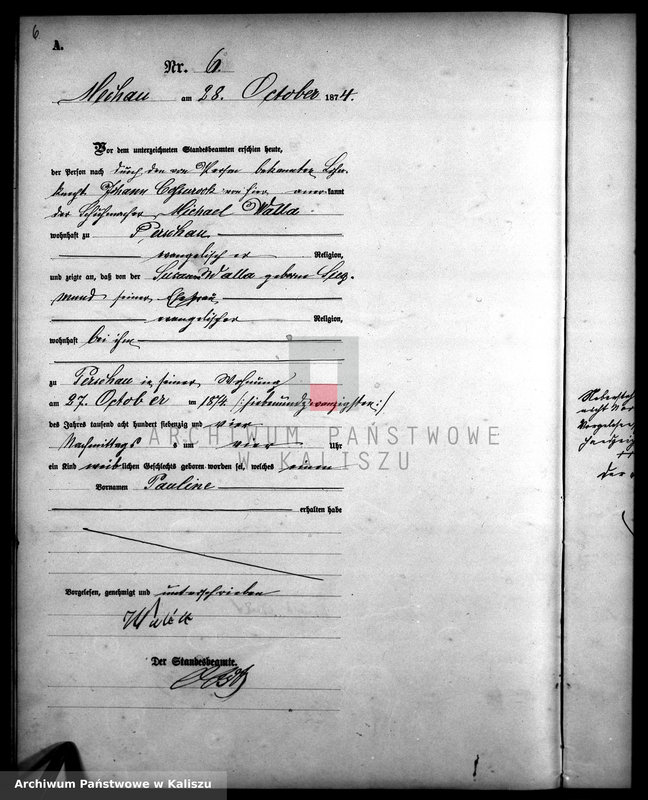 6
A.
Nr. 6.
Mechau am 28. October 1874.
Vor dem unterzeichneten Standesbeamten erschien heute,
der Person nach durch den von Person bekannten
knecht Johann von hier anerkannt
der Schuhmacher Michael Walla
wohnhaft zu Perschau
evangelischer Religion,
und zeigte an, daß von der Susanna Walla geborne
mund seiner Ehefrau
evangelischer Religion,
wohnhaft bei ihm
zu Perschau in seiner Wohnung
am 27. October 1874 /:siebenundzwanzigsten:/
des Jahres tausend acht hundert siebenzig und vier
Nachmittags s um vier Uhr
ein Kind weiblichen Geschlechts geboren worden sei, welches einen
Vornamen Pauline
erhalten habe
Vorgelesen, genehmigt und unterschrieben
Der Standesbeamte.
ARCHIWUM PAŃSTWOWE
W KALISZU
Archiwum Państwowe w Kaliszu